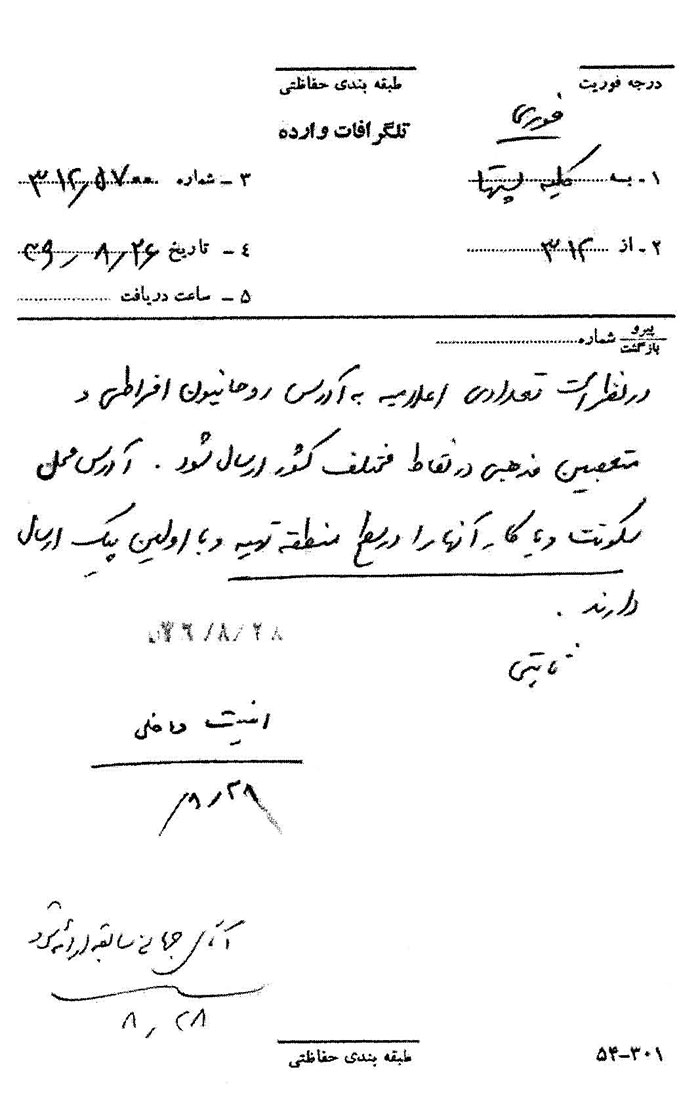 طبقه بندی حفاظتی
درجه فوریت
تلگرافات وارده
فوری
۱ - به کلیه پستها
۳ - شماره ۳۱۲/۵۷۰۰
۲ - از ۳۱۲
۴ - تاریخ ۳۶/۸/۲۶
۵ - ساعت دریافت
پیرو
بازگشت
شماره
در نظر است تعدادی اعلامیه به آدرس روحانیون افراطی و
متعصبین مذهبی در نقاط مختلف کشور ارسال شود . آدرس محل
سکونت و یا کار آنها را در سطح منطقه تهیه و با اولین پیک ارسال
دارند .
ثابتی
۳۶/۸/۲۸
امنیت داخلی
۸/۲۸
آقای سابقه ارائه شود
۸/۲۸
طبقه بندی حفاظتی
۵۴-۳۰۱